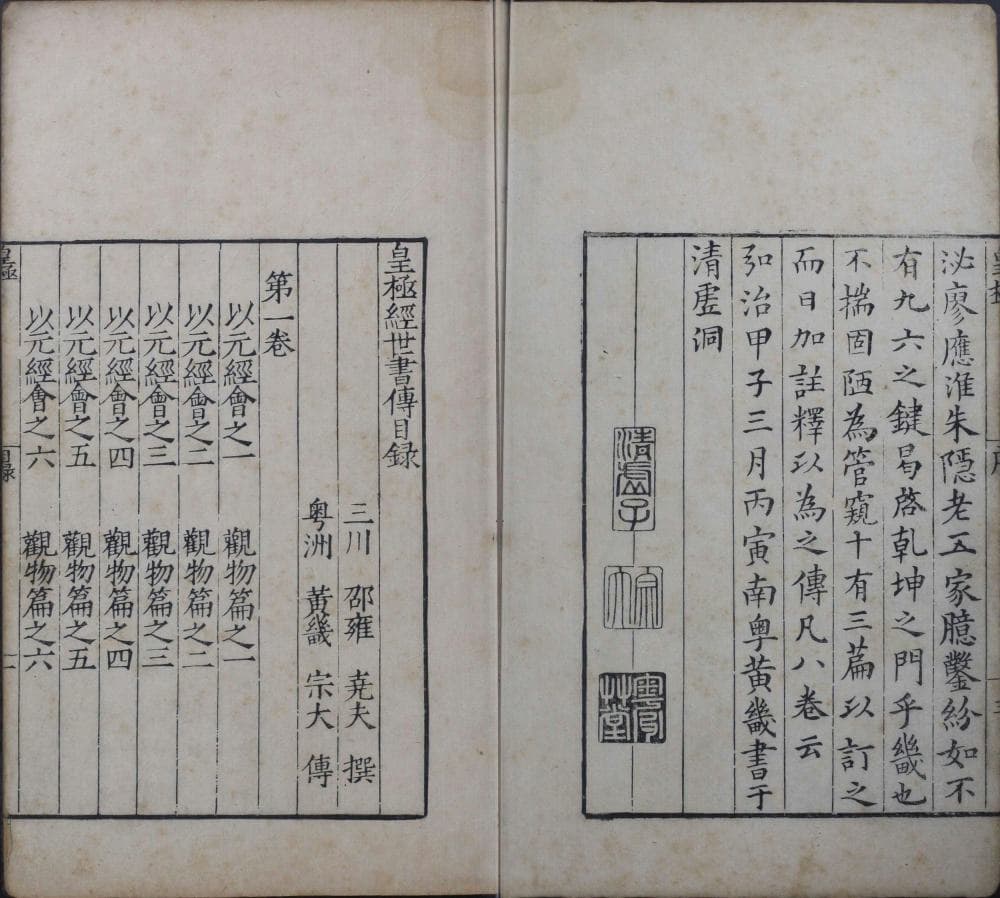 泌廖應淮朱隱老五家臆鑿紛如不
有九六之鍵曷啓乹坤之門乎畿也
不揣固陋為管窺十有三篇以訂之
而日加註釋以為之傳凡八卷云
弘治甲子三月丙寅南粤黃畿書于
清虛洞
清虛子
宗大
粵洲草堂
皇極經世書傳目録
三川 邵雍 堯夫 撰
粤洲 黃畿 宗大 傳
第一卷
以元經會之一 觀物篇之一
以元經會之二 觀物篇之二
以元經會之三 觀物篇之三
以元經會之四 觀物篇之四
以元經會之五 觀物篇之五
以元經會之六 觀物篇之六
皇極 目録 一